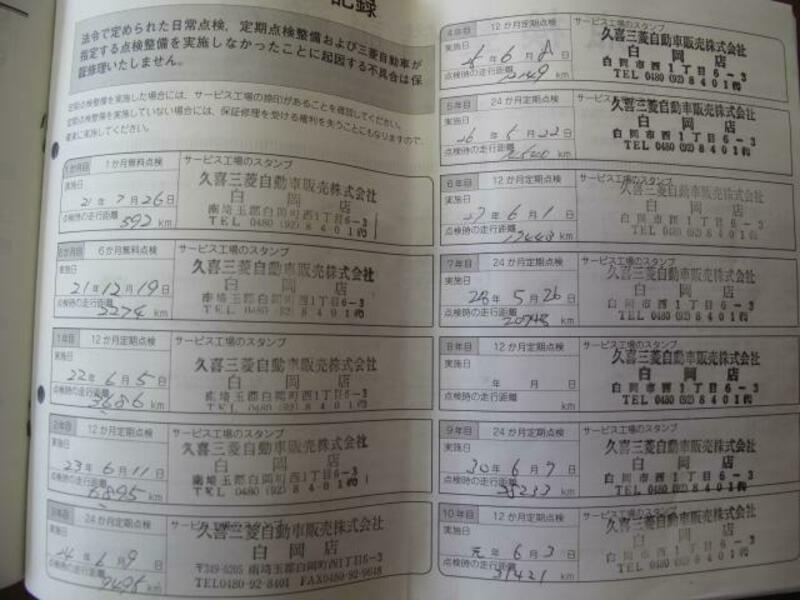 記録
法令で定められた日常点検，定期点検整備および三菱自動車が
指定する点検整備を実施しなかったことに起因する不具合は保
証修理いたしません。
定期点検整備を実施した場合には、サービス工場の捺印があることを確認してください。
定期点検整備を実施していない場合には、保証修理を受ける権利を失うことにもなりますので、
確実に実施してください。
1か月目 1か月無料点検 サービス工場のスタンプ
実施日
21年 7月 26日
点検時の走行距離
592 km
久喜三菱自動車販売株式会社
白岡店
南埼玉郡白岡町西1丁目6-3
TEL 0480 (92) 8401㈹
6か月目 6か月無料点検 サービス工場のスタンプ
実施日
21年 12月 19日
点検時の走行距離
2274 km
久喜三菱自動車販売株式会社
白岡店
南埼玉郡白岡町西1丁目6-3
TEL 0480 (92) 8401㈹
1年目 12か月定期点検 サービス工場のスタンプ
実施日
22年 6月 5日
点検時の走行距離
3686 km
久喜三菱自動車販売株式会社
白岡店
南埼玉郡白岡町西1丁目6-3
TEL 0480 (92) 8401㈹
2年目 12か月定期点検 サービス工場のスタンプ
実施日
23年 6月 11日
点検時の走行距離
6895 km
久喜三菱自動車販売株式会社
白岡店
南埼玉郡白岡町西1丁目6-3
TEL 0480 (92) 8401㈹
3年目 24か月定期点検 サービス工場のスタンプ
実施日
24年 6月 9日
点検時の走行距離
9495 km
久喜三菱自動車販売株式会社
白岡店
〒349-0205 南埼玉郡白岡町西1丁目6-3
TEL0480-92-8401 FAX0480-92-9648
4年目 12か月定期点検 サービス工場のスタンプ
実施日
年 6月 8日
点検時の走行距離
km
久喜三菱自動車販売株式会社
白岡店
白岡市西1丁目6-3
TEL 0480 (92) 8401㈹
5年目 24か月定期点検 サービス工場のスタンプ
実施日
26年 5月 22日
点検時の走行距離
km
久喜三菱自動車販売株式会社
白岡店
白岡市西1丁目6-3
TEL 0480 (92) 8401㈹
6年目 12か月定期点検 サービス工場のスタンプ
実施日
27年 6月 1日
点検時の走行距離
km
久喜三菱自動車販売株式会社
白岡店
白岡市西1丁目6-3
TEL 0480 (92) 8401㈹
7年目 24か月定期点検 サービス工場のスタンプ
実施日
28年 5月 26日
点検時の走行距離
km
久喜三菱自動車販売株式会社
白岡店
白岡市西1丁目6-3
TEL 0480 (92) 8401㈹
8年目 12か月定期点検 サービス工場のスタンプ
実施日
年 月 日
点検時の走行距離
km
久喜三菱自動車販売株式会社
白岡店
白岡市西1丁目6-3
TEL 0480 (92) 8401㈹
9年目 24か月定期点検 サービス工場のスタンプ
実施日
30年 6月 9日
点検時の走行距離
km
久喜三菱自動車販売株式会社
白岡店
白岡市西1丁目6-3
TEL 0480 (92) 8401㈹
10年目 12か月定期点検 サービス工場のスタンプ
実施日
元年 6月 3日
点検時の走行距離
31421 km
久喜三菱自動車販売株式会社
白岡店
白岡市西1丁目6-3
TEL 0480 (92) 8401㈹